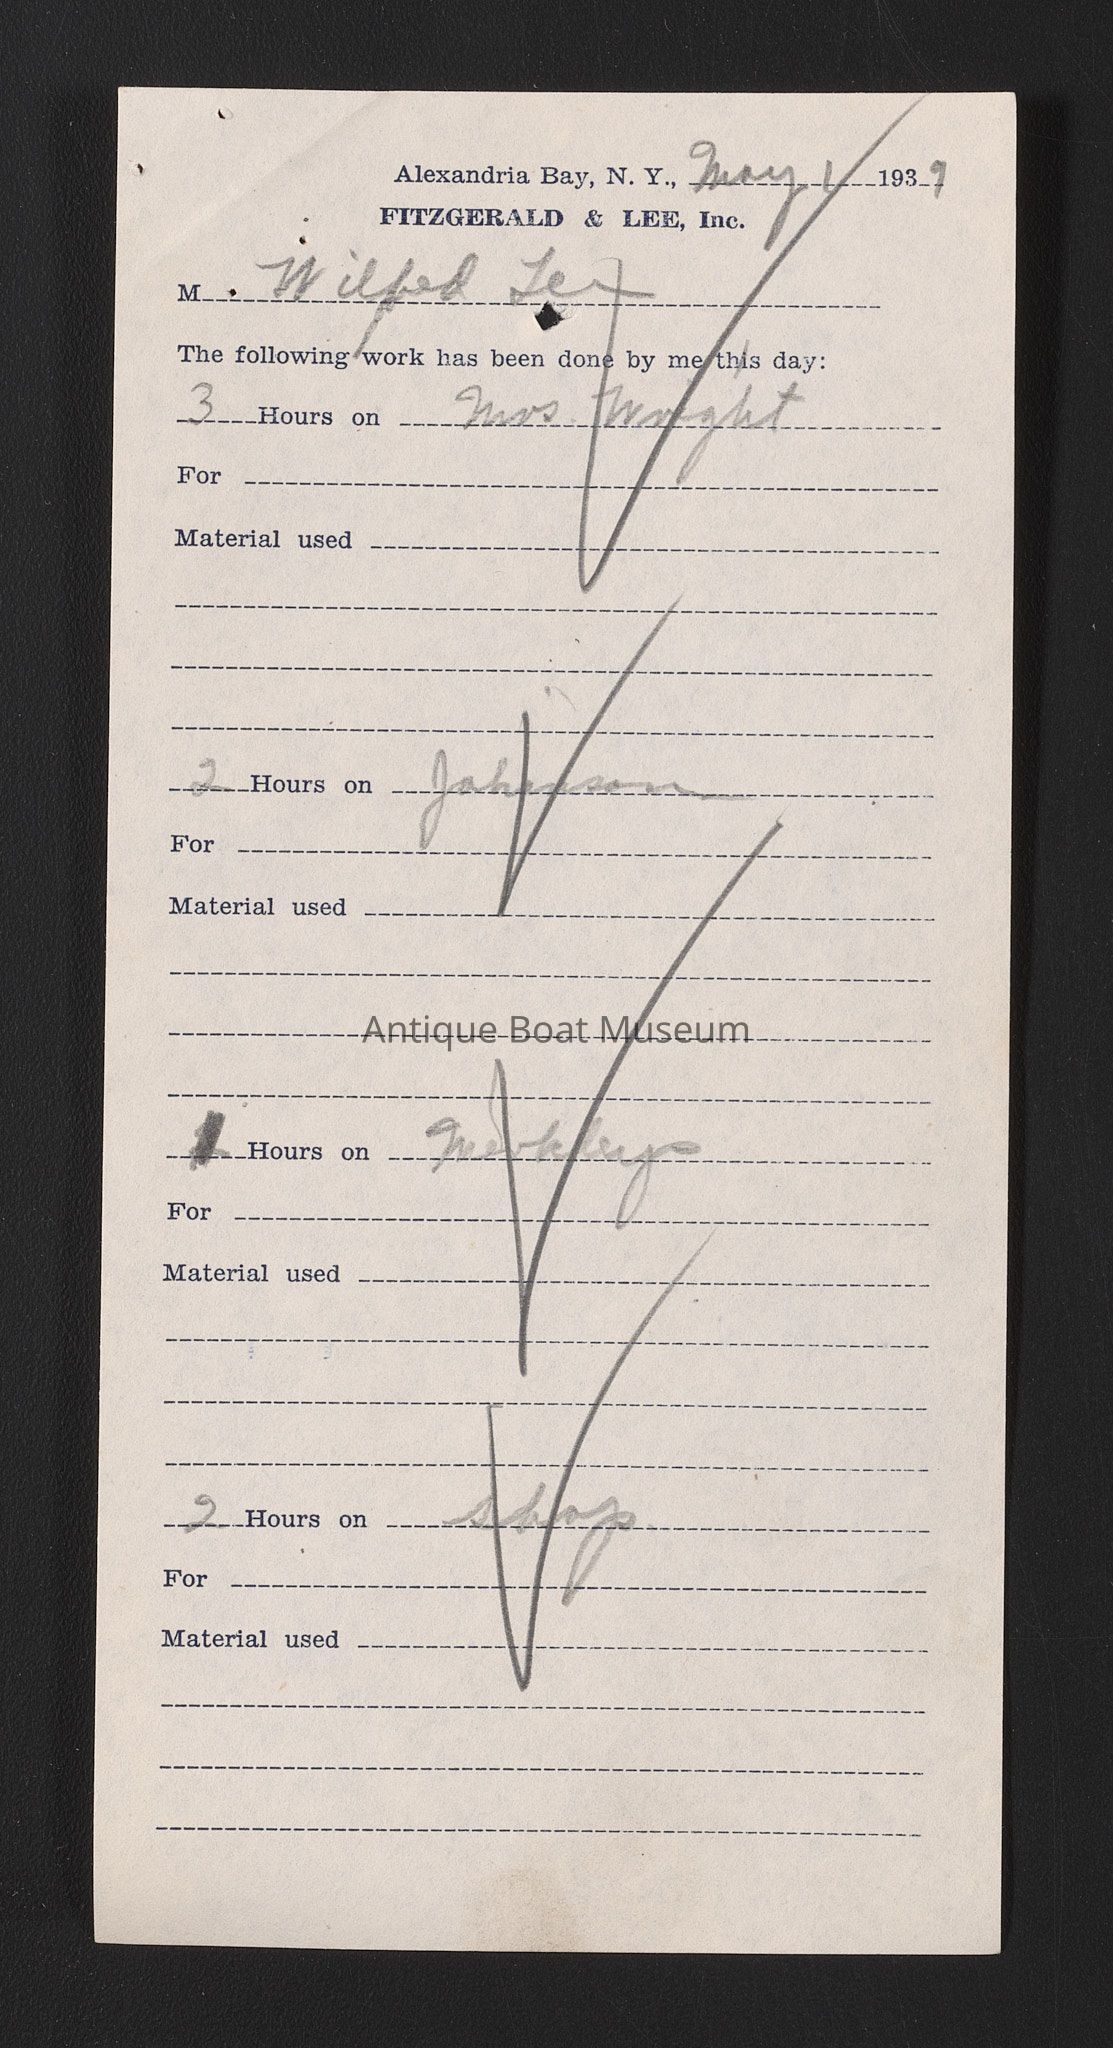 Alexandria Bay, N. Y., May 1 1939
FITZGERALD & LEE, Inc.
M Wilfred Lee
The following work has been done by me this day:
3 Hours on Mrs Wright
For
Material used
2 Hours on Johnson
For
Material used
Antique Boat Museum
1 Hours on Merkleys
For
Material used
2 Hours on Shop
For
Material used